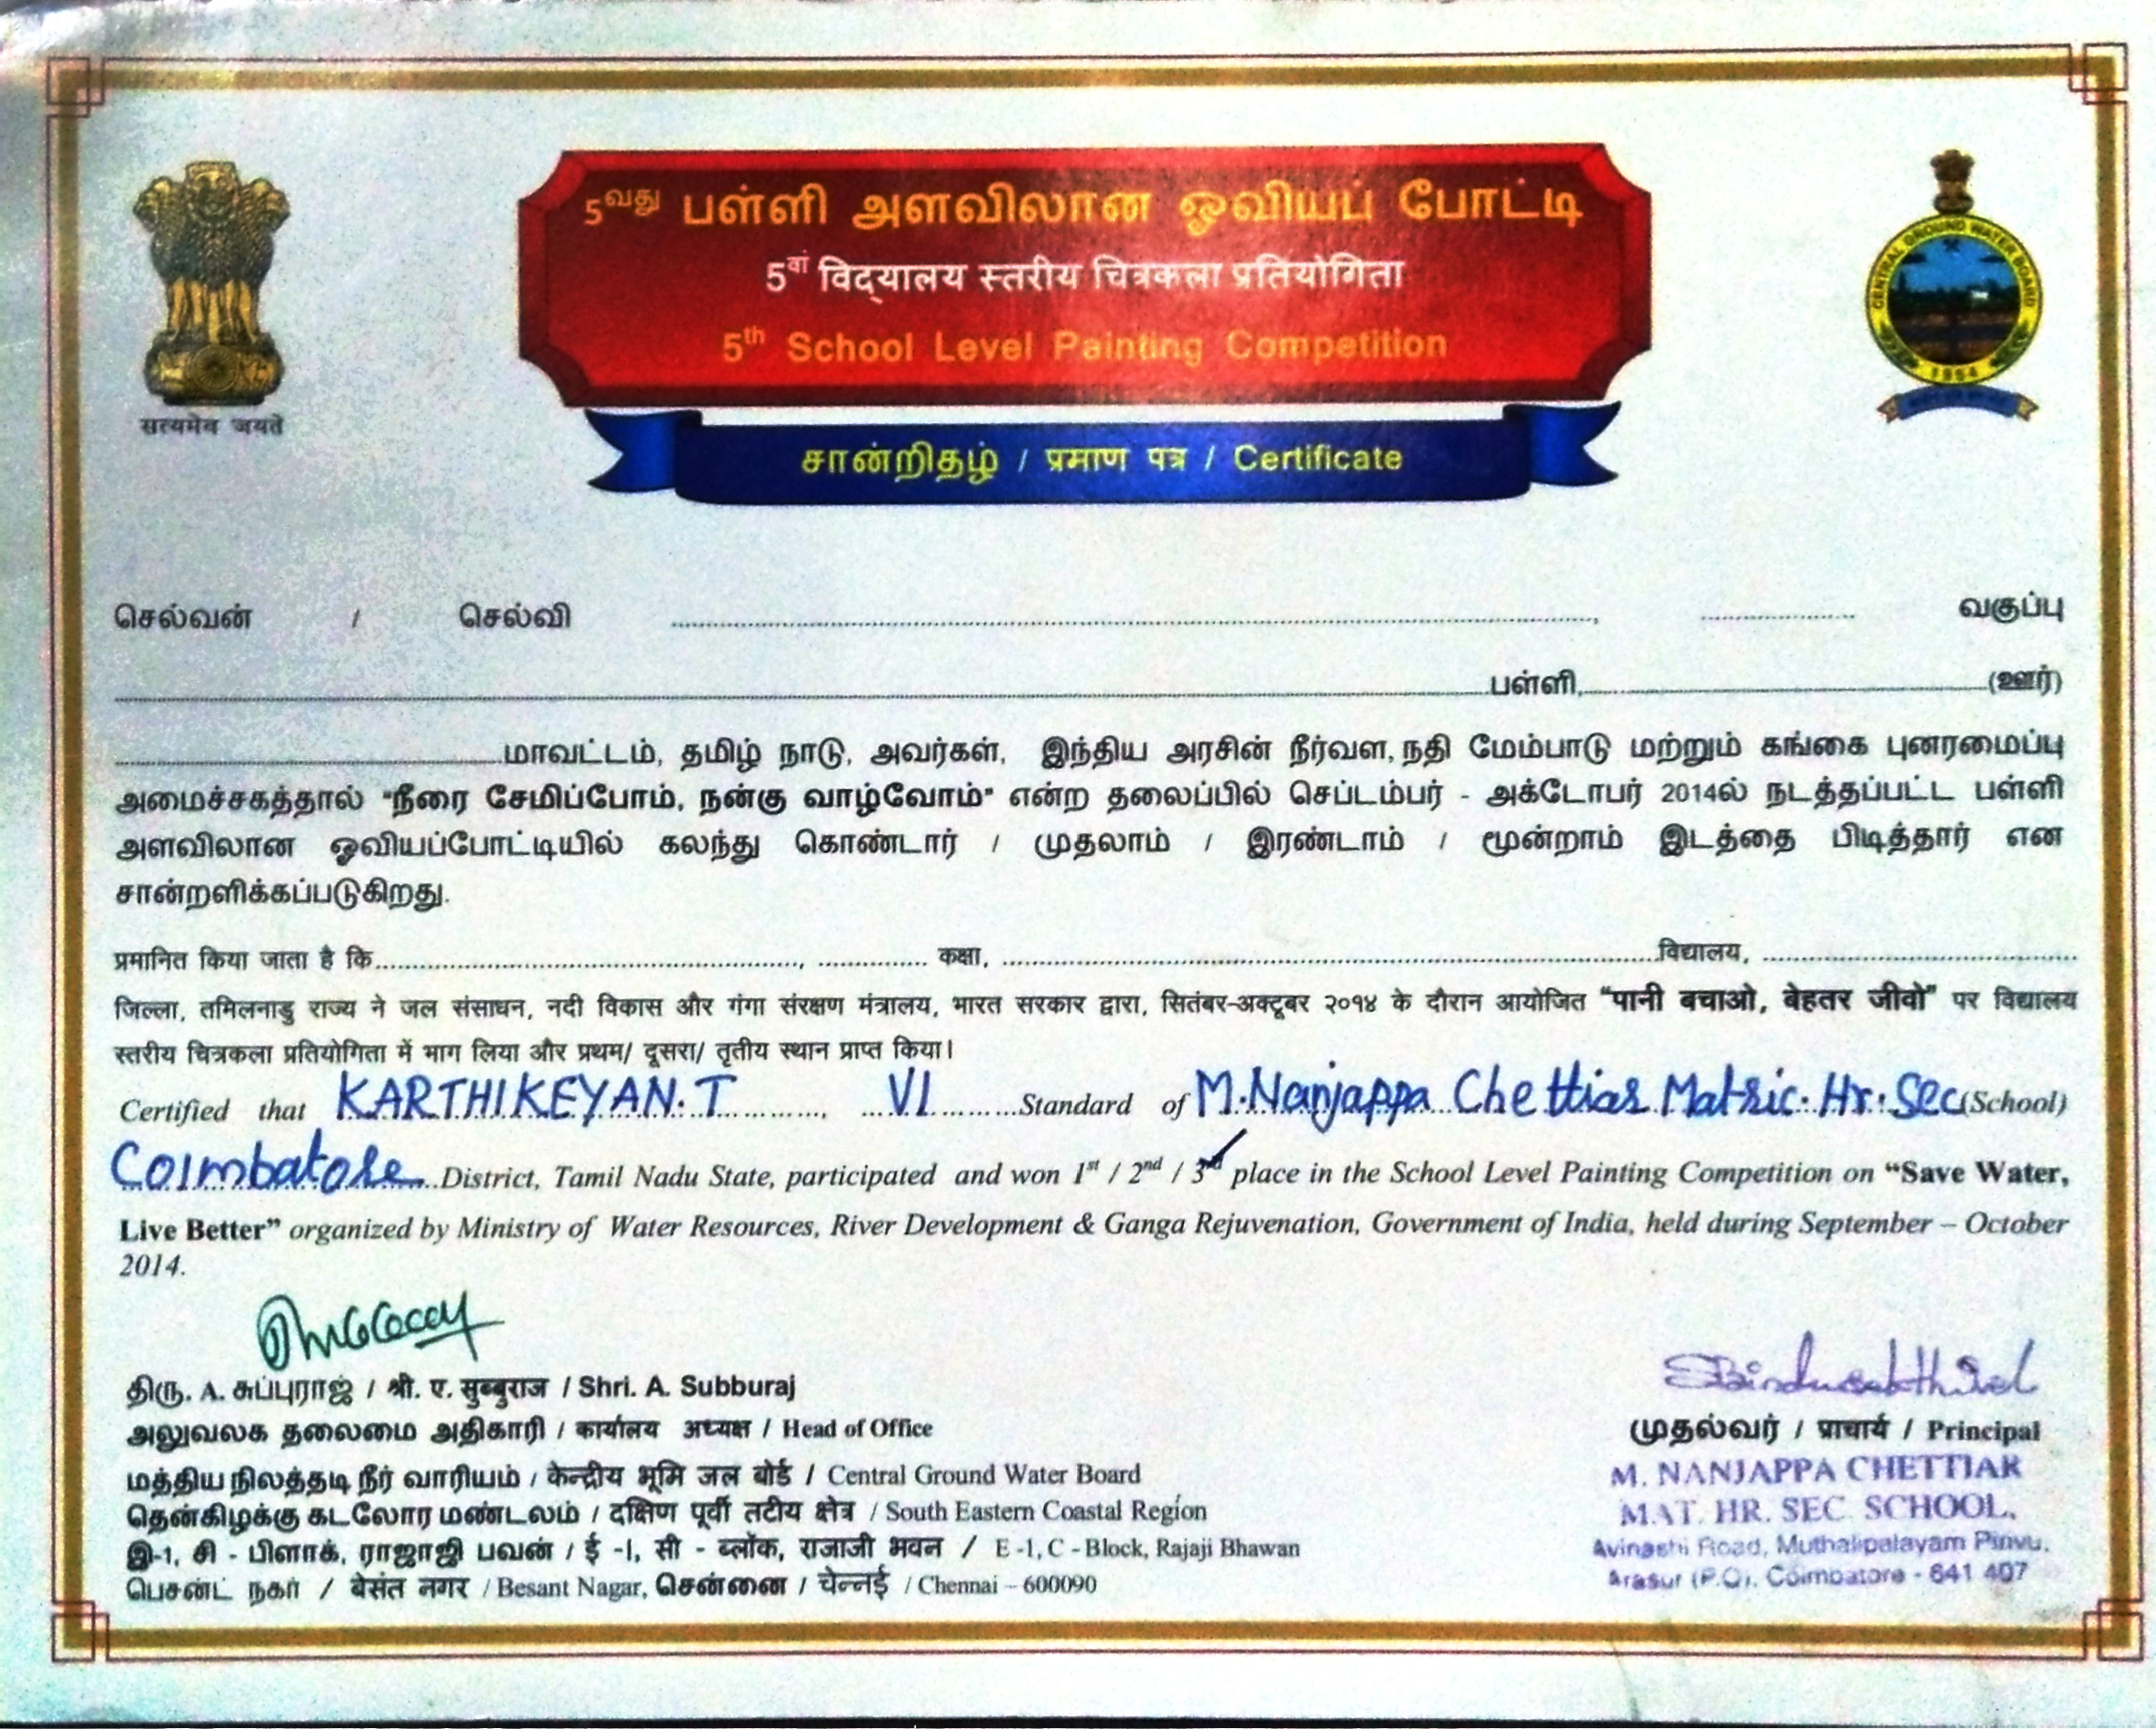 5வது பள்ளி அளவிலான ஓவியப் போட்டி
5वां विद्यालय स्तरीय चित्रकला प्रतियोगिता
5th School Level Painting Competition
सत्यमेव जयते
CENTRAL GROUND WATER BOARD
1954
சான்றிதழ் / प्रमाण पत्र / Certificate
செல்வன் / செல்வி ...................., .......... வகுப்பு
....................பள்ளி,....................(ஊர்)
....................மாவட்டம், தமிழ் நாடு, அவர்கள், இந்திய அரசின் நீர்வள, நதி மேம்பாடு மற்றும் கங்கை புனரமைப்பு
அமைச்சகத்தால் "நீரை சேமிப்போம், நன்கு வாழ்வோம்" என்ற தலைப்பில் செப்டம்பர் - அக்டோபர் 2014ல் நடத்தப்பட்ட பள்ளி
அளவிலான ஓவியப்போட்டியில் கலந்து கொண்டார் / முதலாம் / இரண்டாம் / மூன்றாம் இடத்தை பிடித்தார் என
சான்றளிக்கப்படுகிறது.
प्रमानित किया जाता है कि...................., .......... कक्षा, ....................विद्यालय, ....................
जिल्ला, तमिलनाडु राज्य ने जल संसाधन, नदी विकास और गंगा संरक्षण मंत्रालय, भारत सरकार द्वारा, सितंबर-अक्टूबर २०१४ के दौरान आयोजित "पानी बचाओ, बेहतर जीवो" पर विद्यालय
स्तरीय चित्रकला प्रतियोगिता में भाग लिया और प्रथम/ दूसरा/ तृतीय स्थान प्राप्त किया।
Certified that KARTHIKEYAN.T, VI Standard of M.Nanjappa Chettiar Matric. Hr. Sec (School)
Coimbatore District, Tamil Nadu State, participated and won 1st / 2nd / 3rd place in the School Level Painting Competition on "Save Water,
Live Better" organized by Ministry of Water Resources, River Development & Ganga Rejuvenation, Government of India, held during September – October
2014.
திரு. A. சுப்புராஜ் / श्री. ए. सुब्बुराज / Shri. A. Subburaj
அலுவலக தலைமை அதிகாரி / कार्यालय अध्यक्ष / Head of Office
மத்திய நிலத்தடி நீர் வாரியம் / केन्द्रीय भूमि जल बोर्ड / Central Ground Water Board
தென்கிழக்கு கடலோர மண்டலம் / दक्षिण पूर्वी तटीय क्षेत्र / South Eastern Coastal Region
இ-1, சி - பிளாக், ராஜாஜி பவன் / ई -I, सी - ब्लॉक, राजाजी भवन / E -1, C - Block, Rajaji Bhawan
பெசன்ட் நகர் / बेसंत नगर / Besant Nagar, சென்னை / चेन्नई / Chennai – 600090
முதல்வர் / प्राचार्य / Principal
M. NANJAPPA CHETTIAR
MAT. HR. SEC. SCHOOL,
Avinashi Road, Muthalipalayam Pirivu,
Arasur (P.O), Coimbatore - 641 407